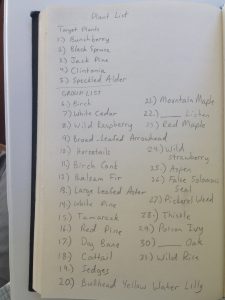 Plant List
Target Plants
1.) Bunchberry
2.) Black Spruce
3.) Jack Pine
4.) Clintonia
5.) Speckled Alder
GROUP LIST
6.) Birch
7.) White Cedar
8.) Wild Raspberry
9.) Broad Leafed Arrowhead
10.) Horsetails
11.) Birch Conk
12.) Balsam Fir
13.) Large Leafed Aster
14.) White Pine
15.) Tamarack
16.) Red Pine
17.) Dog Bane
18.) Cattail
19.) Sedges
20.) Bullhead Yellow Water Lilly
21.) Mountain Maple
22.) ____ Lichen
23.) Red Maple
24.) Wild
Strawberry
25.) Aspen
26.) False Solomons
Seal
27.) Pickerel Weed
28.) Thistle
29.) Poison Ivy
30.) ____ Oak
31.) Wild Rice